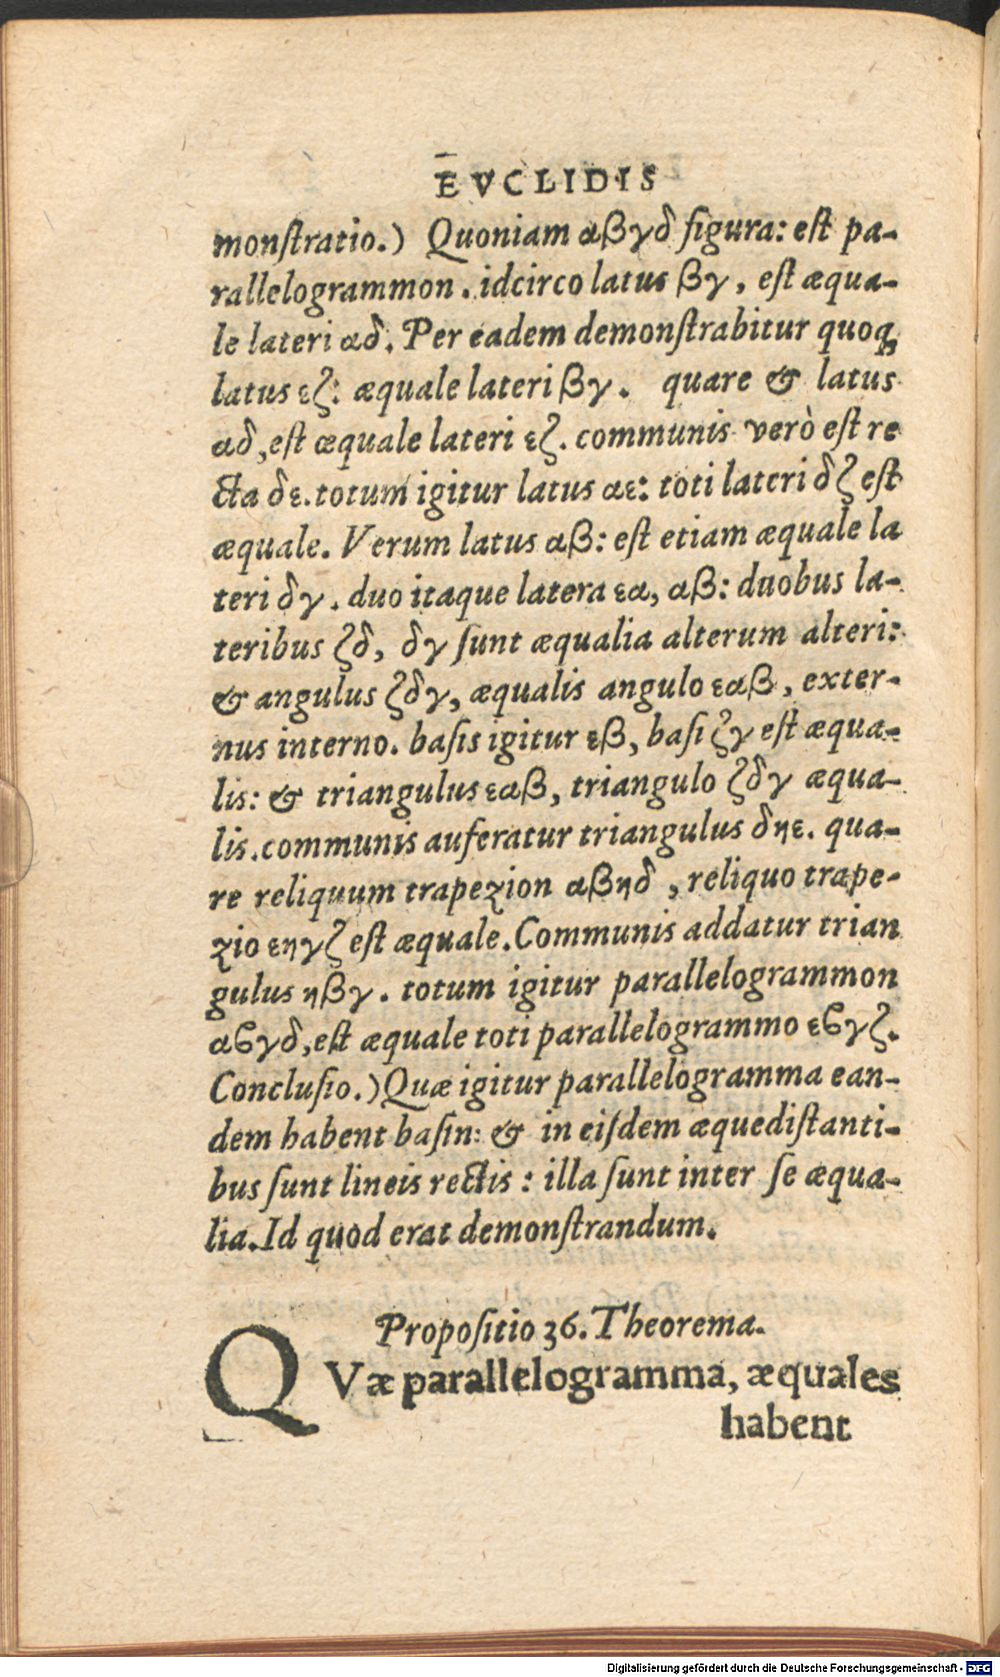 EVCLIDIS
monſtratio.) Quoniam αβγδ figura: eſt pa-
rallelogrammon. idcirco latus βγ, eſt æqua-
le lateri αδ. Per eadem demonſtrabitur quoq;
latus εζ: æquale lateri βγ. quare & latus
αδ, eſt æquale lateri εζ. communis verò eſt re
cta δε. totum igitur latus αε: toti lateri δζ eſt
æquale. Verum latus αβ: eſt etiam æquale la
teri δγ. duo itaque latera εα, αβ: duobus la-
teribus ζδ, δγ ſunt æqualia alterum alteri:
& angulus ζδγ, æqualis angulo εαβ, exter-
nus interno. baſis igitur εβ, baſi ζγ eſt æqua-
lis: & triangulus εαβ, triangulo ζδγ æqua-
lis. communis auferatur triangulus δηε. qua-
re reliquum trapezion αβηδ, reliquo trape-
zio εηγζ eſt æquale. Communis addatur trian
gulus ηβγ. totum igitur parallelogrammon
αϐγδ, eſt æquale toti parallelogrammo εϐγζ.
Concluſio.) Quæ igitur parallelogramma ean-
dem habent baſin: & in eiſdem æquediſtanti-
bus ſunt lineis rectis: illa ſunt inter ſe æqua-
lia. Id quod erat demonſtrandum.
Propoſitio 36. Theorema.
QVæ parallelogramma, æquales
habent
Digitalisierung gefördert durch die Deutsche Forschungsgemeinschaft - DFG